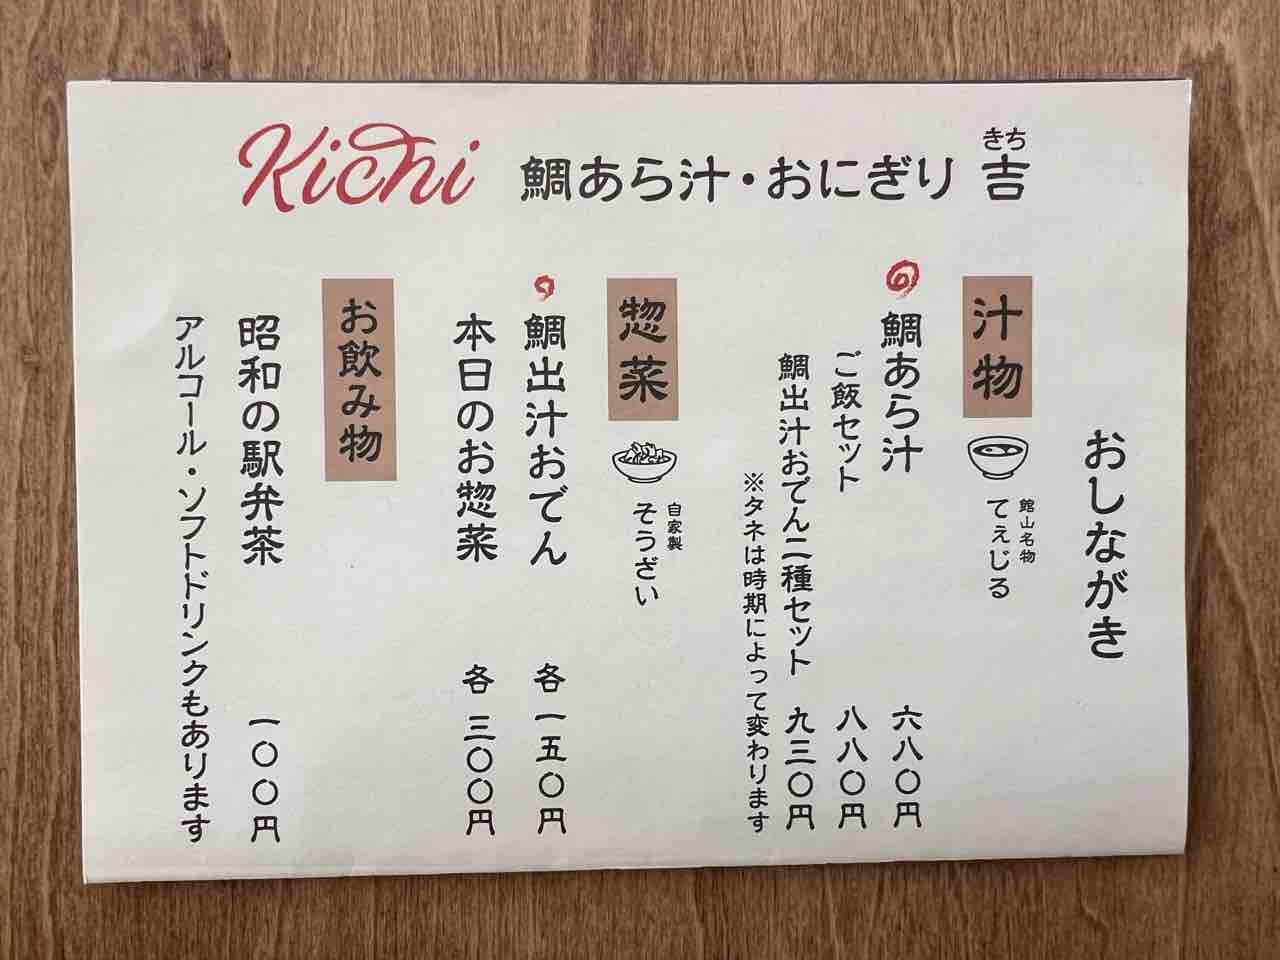 Kichi 鯛あら汁・おにぎり 吉
きち
おしながき
汁物
館山名物
てぇじる
鯛あら汁 六八〇円
ご飯セット 八八〇円
鯛出汁おでん二種セット 九三〇円
※タネは時期によって変わります
惣菜
自家製
そうざい
鯛出汁おでん 各一五〇円
本日のお惣菜 各三〇〇円
お飲み物
昭和の駅弁茶 一〇〇円
アルコール・ソフトドリンクもあります